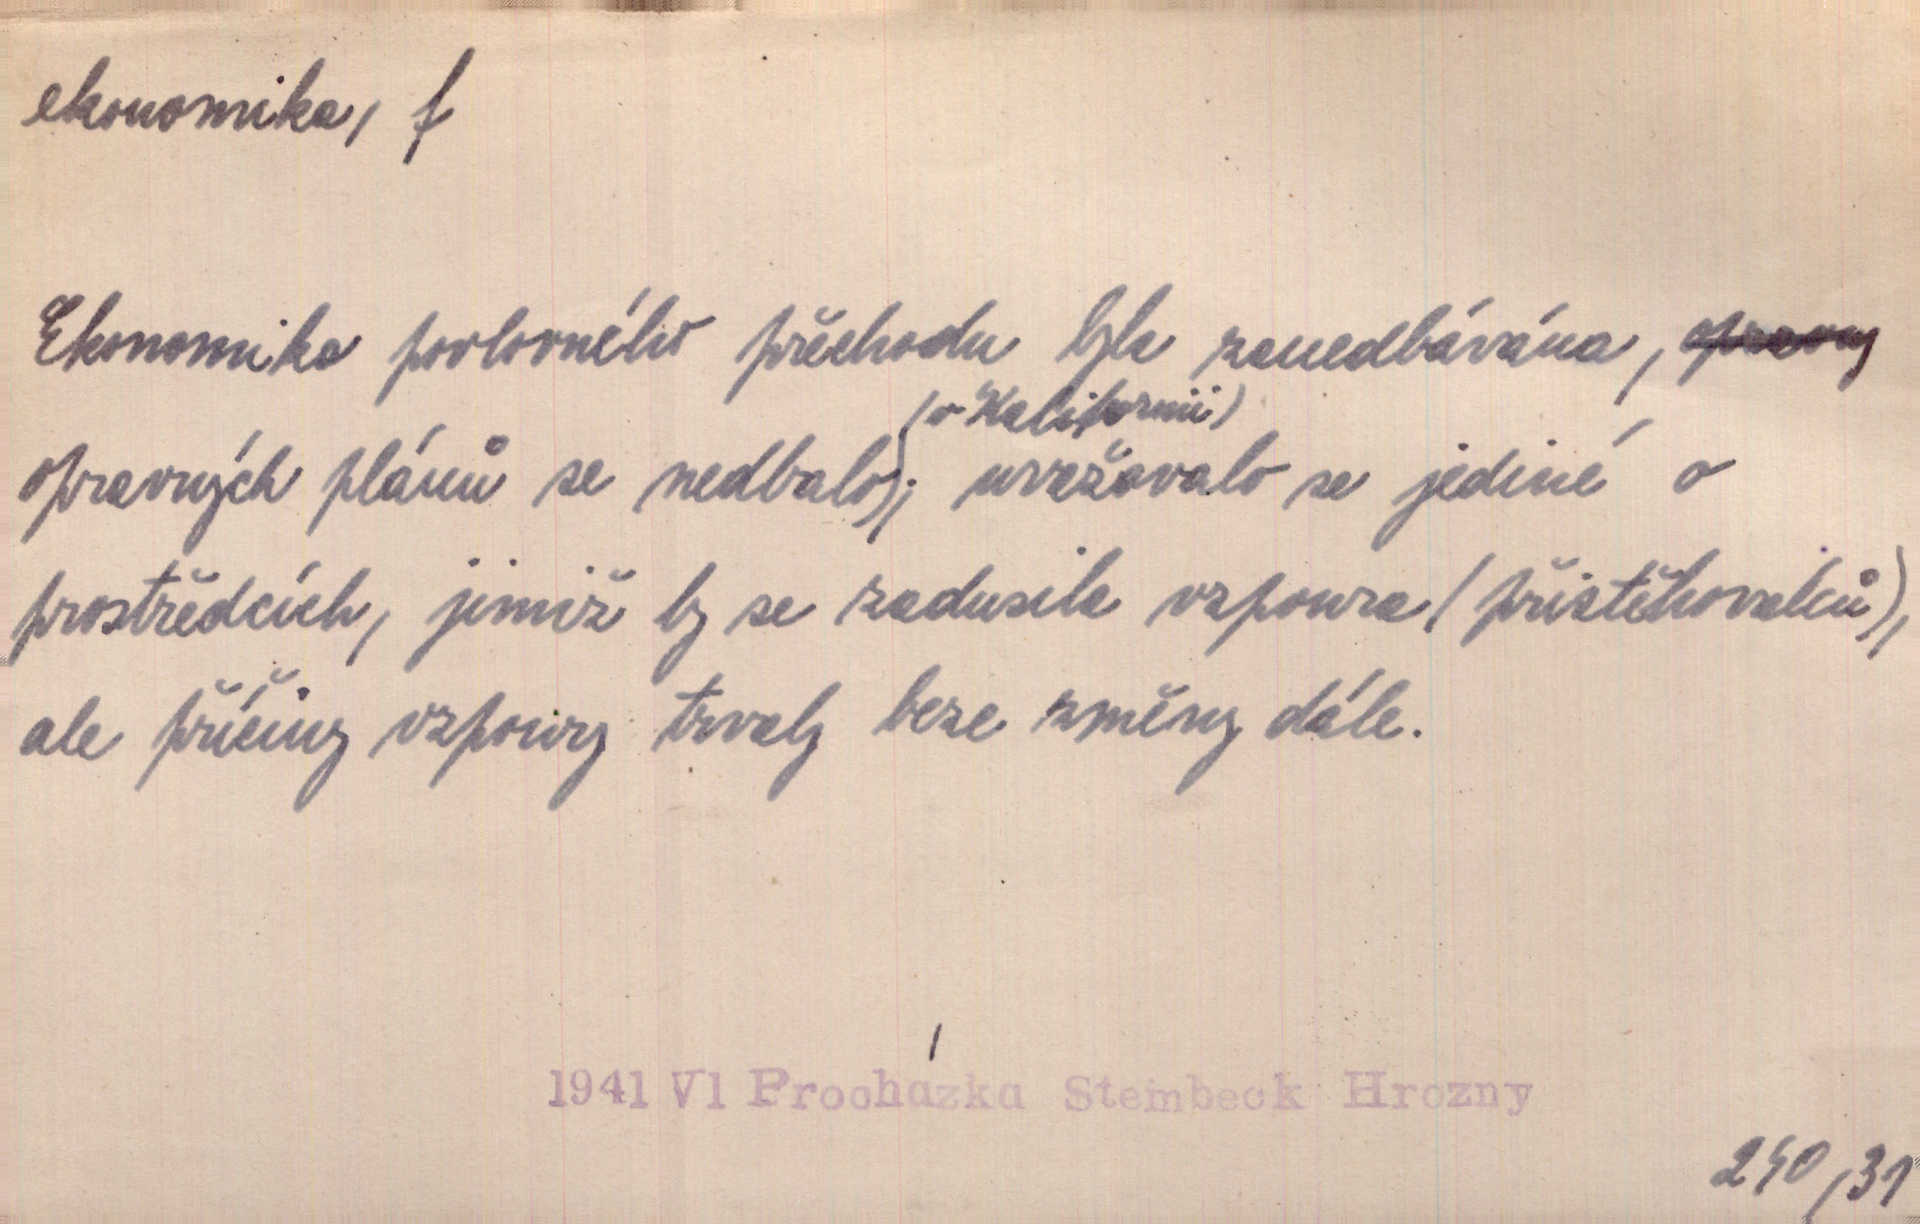 ekonomika, f
Ekonomika povlovného přechodu byla zanedbávána, opravy
(v Kalifornii)
opravných plánů se nedbalo); uvažovalo se jediné o
prostředcích, jimiž by se zadusila vzpoura (přistěhovalců),
ale příčiny vzpoury trvaly beze změny dále.
1941 Vl Procházka Steinbeck Hrozny
240,31